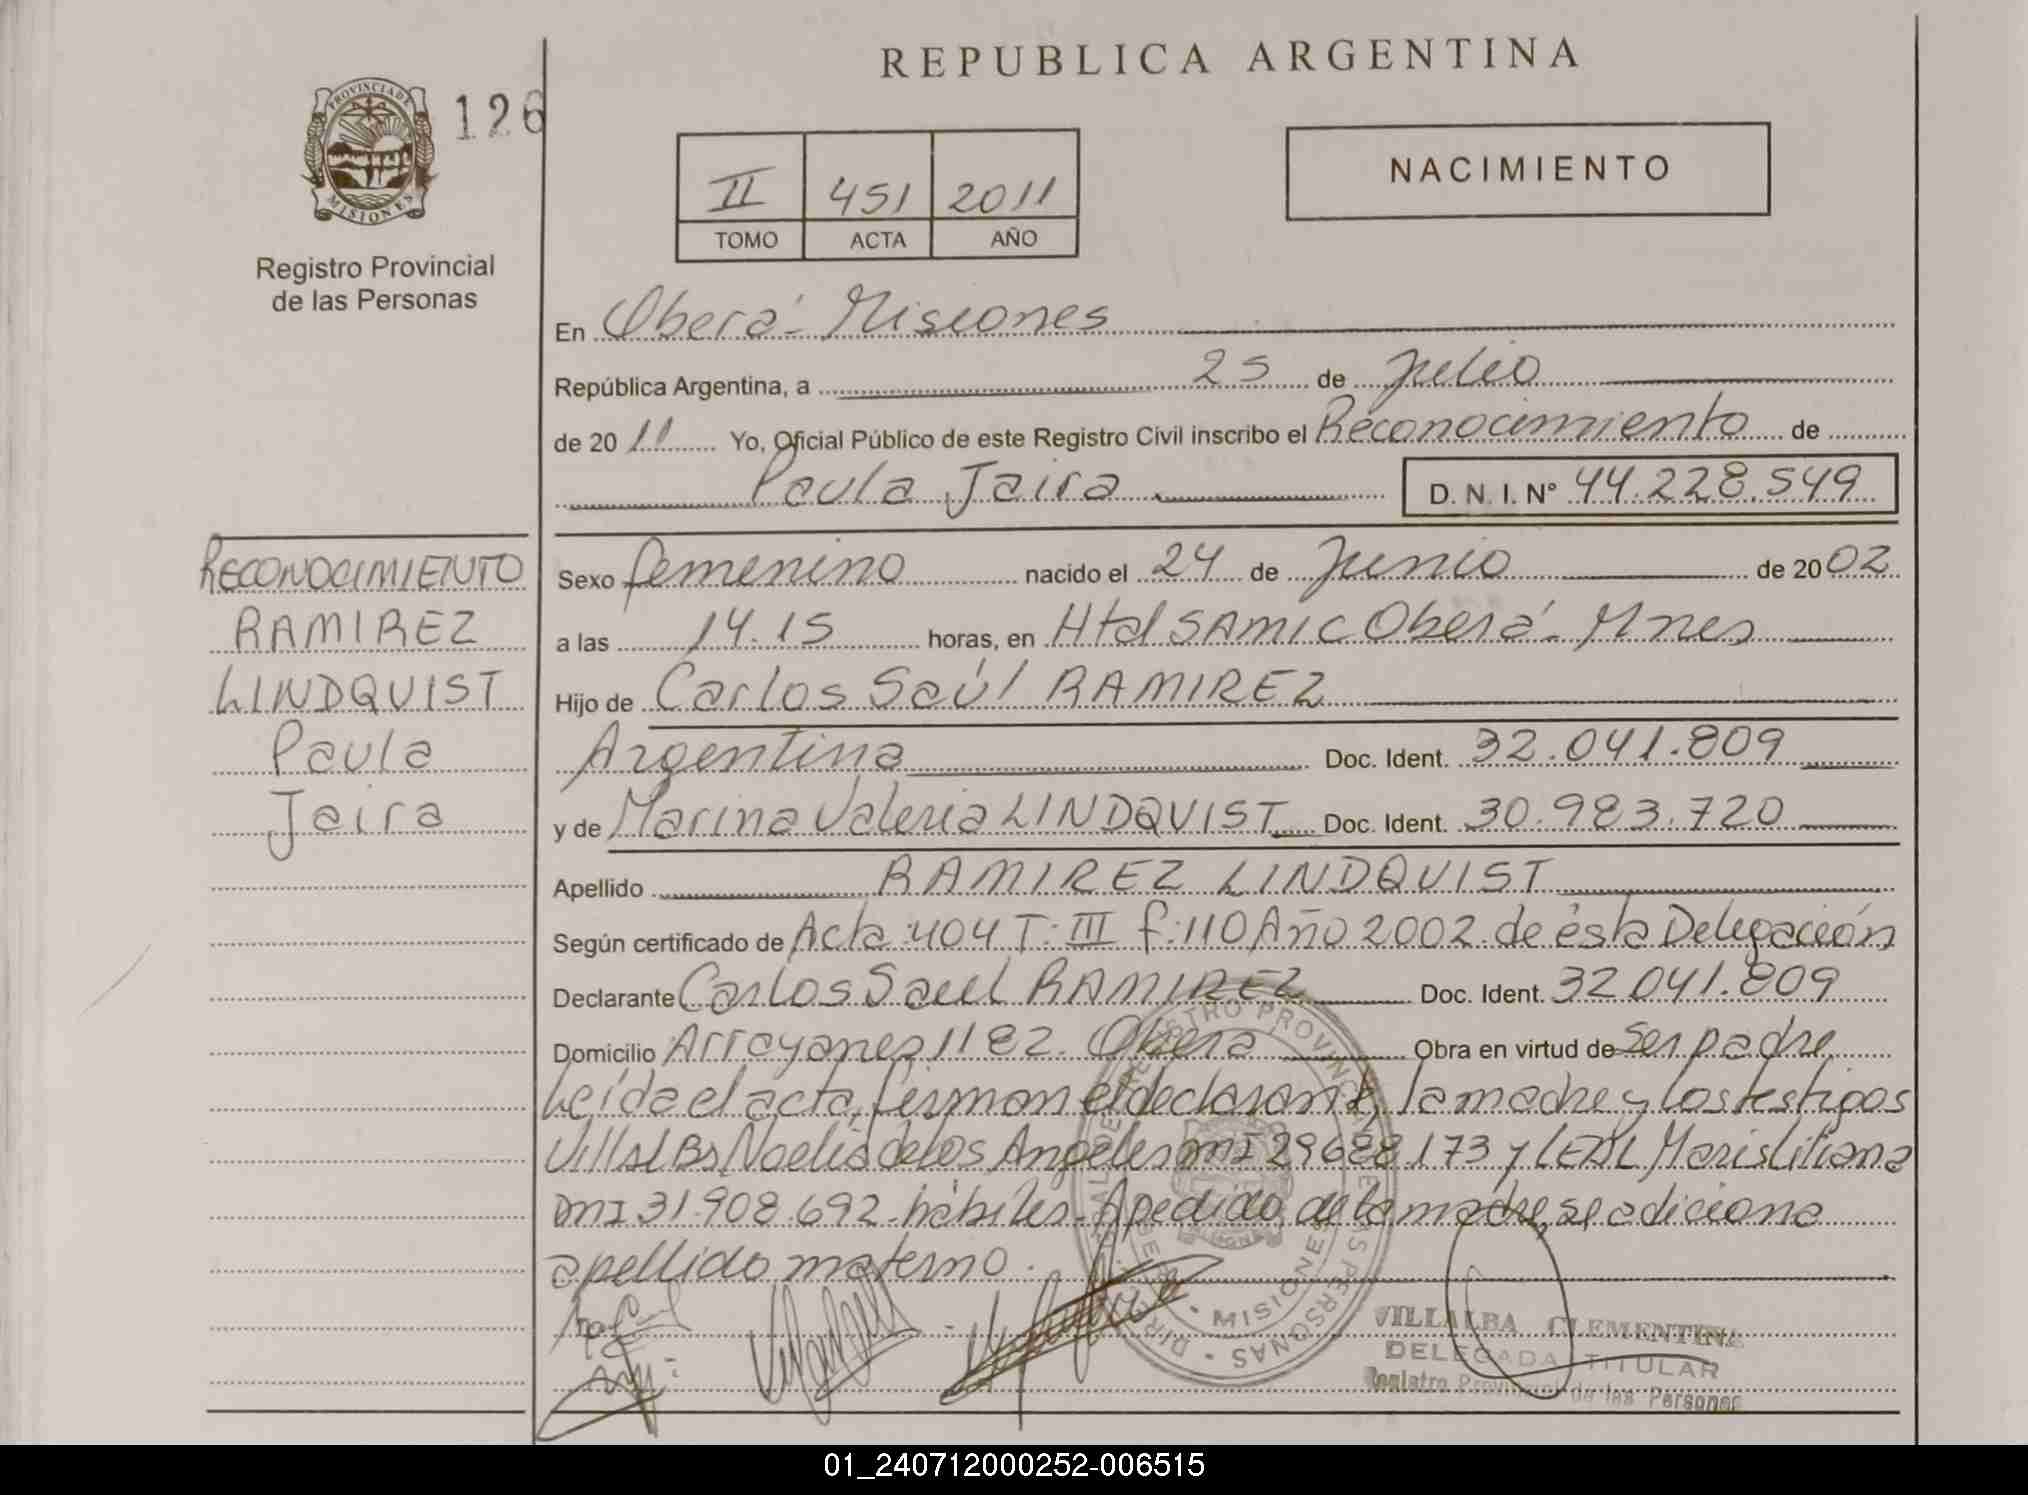 REPUBLICA ARGENTINA
PROVINCIA DE
MISIONES
126
Registro Provincial
de las Personas
II 451 2011
TOMO ACTA AÑO
NACIMIENTO
En Oberá - Misiones
República Argentina, a 25 de Julio
de 20 11 Yo, Oficial Público de este Registro Civil inscribo el Reconocimiento de
Paula Jaira D. N. I. Nº 44.228.549
RECONOCIMIENTO
RAMIREZ
LINDQUIST
Paula
Jaira
Sexo femenino nacido el 24 de Junio de 20 02
a las 14.15 horas, en Htal SAMIC Oberá - Mnes
Hijo de Carlos Saúl RAMIREZ
Argentina Doc. Ident. 32.041.809
y de Marina Valeria LINDQUIST Doc. Ident. 30.983.720
Apellido RAMIREZ LINDQUIST
Según certificado de Acta: 404 T: III f: 110 Año 2002 de ésta Delegación
Declarante Carlos Saul RAMIREZ Doc. Ident. 32.041.809
Domicilio Arrayanes 1182. Oberá Obra en virtud de ser padre
Leída el acta, firman el declarante, la madre y los testigos
Noelia de los Angeles MI 29688173 y LEAL Maris Liliana
DNI 31.908.692. hábiles. A pedido de la madre, se adiciona
apellido materno.
MISIONES
VILLALBA CLEMENTINA
DELEGADA TITULAR
Registro Provincial de las Personas
01_240712000252-006515